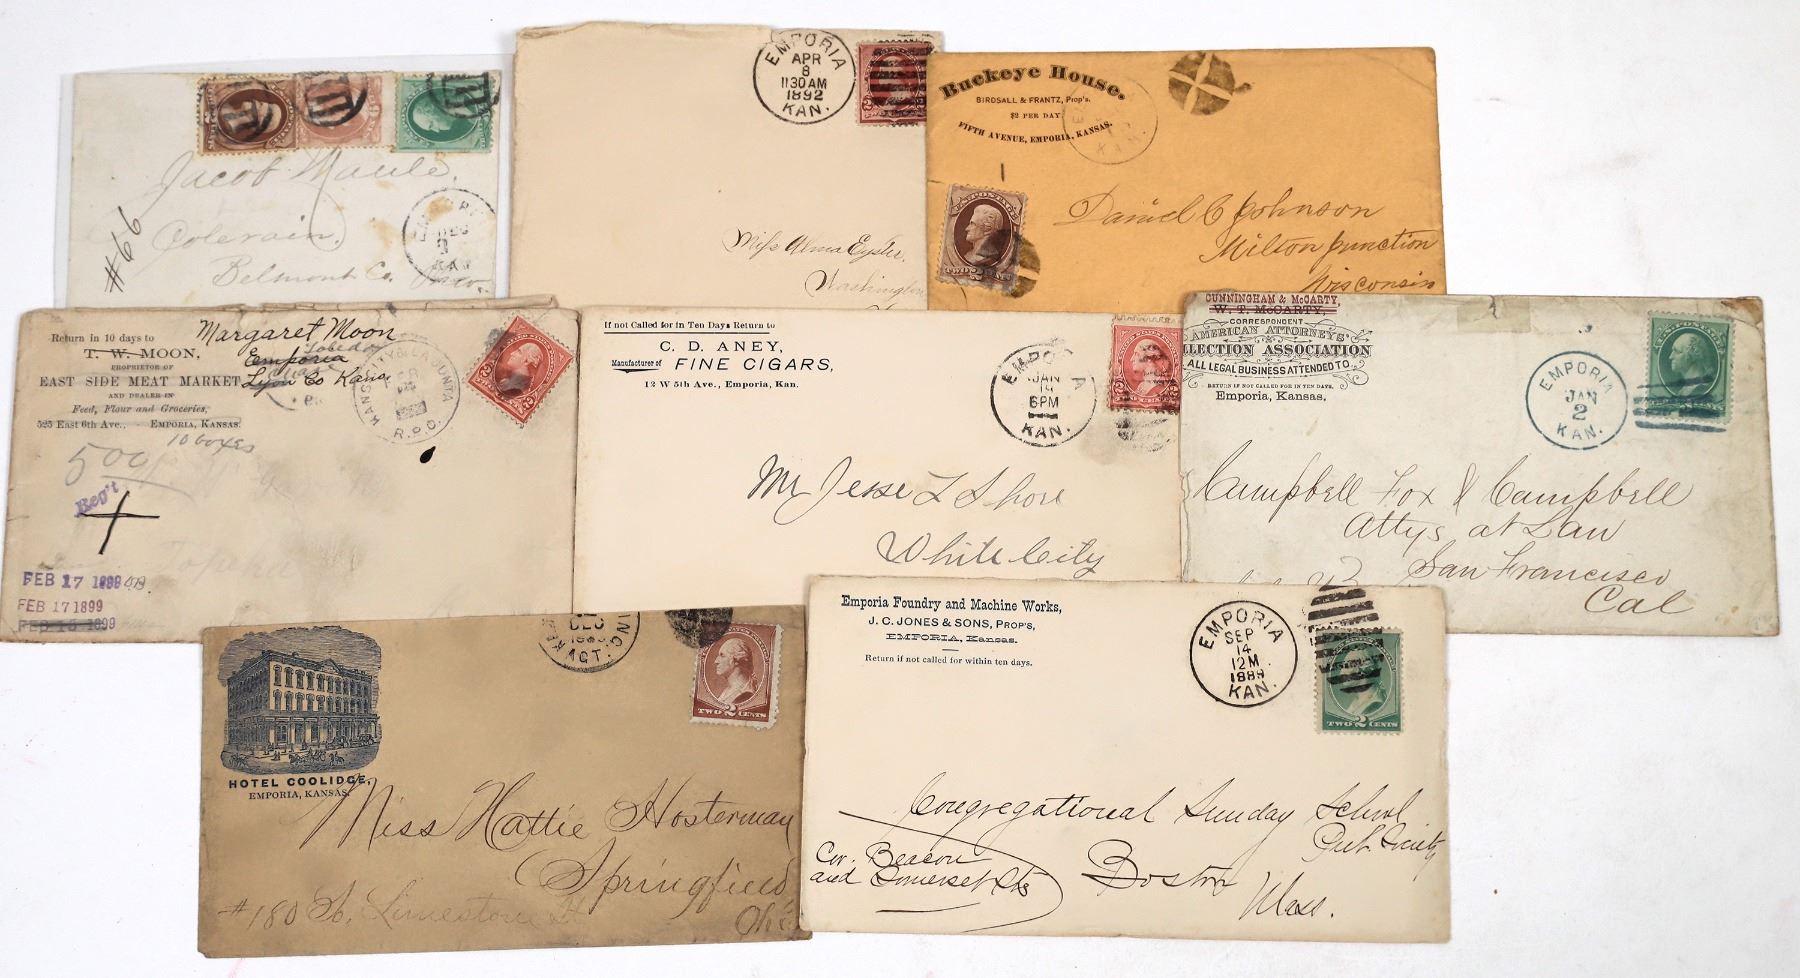 Jacob Maule,
Colerain,
Belmont Co.
#66
DEC
KAN
EMPORIA
APR
8
1130AM
1892
KAN.
Miss Alma Eyster,
Washington
Buckeye House.
BIRDSALL & FRANTZ, Prop's.
$2 PER DAY.
FIFTH AVENUE, EMPORIA, KANSAS.
TWO 2 CENTS
Daniel C Johnson
Milton Junction
Wisconsin
Return in 10 days to
T. W. MOON,
PROPRIETOR OF
EAST SIDE MEAT MARKET
AND DEALER IN
Feed, Flour and Groceries,
525 East 6th Ave., EMPORIA, KANSAS.
Margaret Moon
Emporia
Lyon Co Kans
R.P.O.
500
10 boxes
Reg't
Topeka
FEB 17 1899
FEB 17 1899
FEB 15 1899
If not Called for in Ten Days Return to
C. D. ANEY,
Manufacturer of FINE CIGARS,
12 W 5th Ave., Emporia, Kan.
EMPORIA
JAN
6PM
KAN.
Mr Jesse L Shore
White City
CUNNINGHAM & McCARTY,
W. T. McCARTY,
CORRESPONDENT
AMERICAN ATTORNEYS'
LLECTION ASSOCIATION
ALL LEGAL BUSINESS ATTENDED TO
RETURN IF NOT CALLED FOR IN TEN DAYS,
Emporia, Kansas.
EMPORIA
JAN
2
KAN.
Campbell Fox & Campbell
Attys at Law
San Francisco
Cal
HOTEL COOLIDGE,
EMPORIA, KANSAS.
DEC
TWO 2 CENTS
Miss Hattie Hosterman
Springfield
#180 So. Limestone St
Ohi
Emporia Foundry and Machine Works,
J. C. JONES & SONS, PROP'S,
EMPORIA, Kansas.
Return if not called for within ten days.
EMPORIA
SEP
14
12M
1889
KAN.
TWO 2 CENTS
Congregational Sunday School
Pub. Society
Cor. Beacon
and Somerset Sts
Boston
Mass.